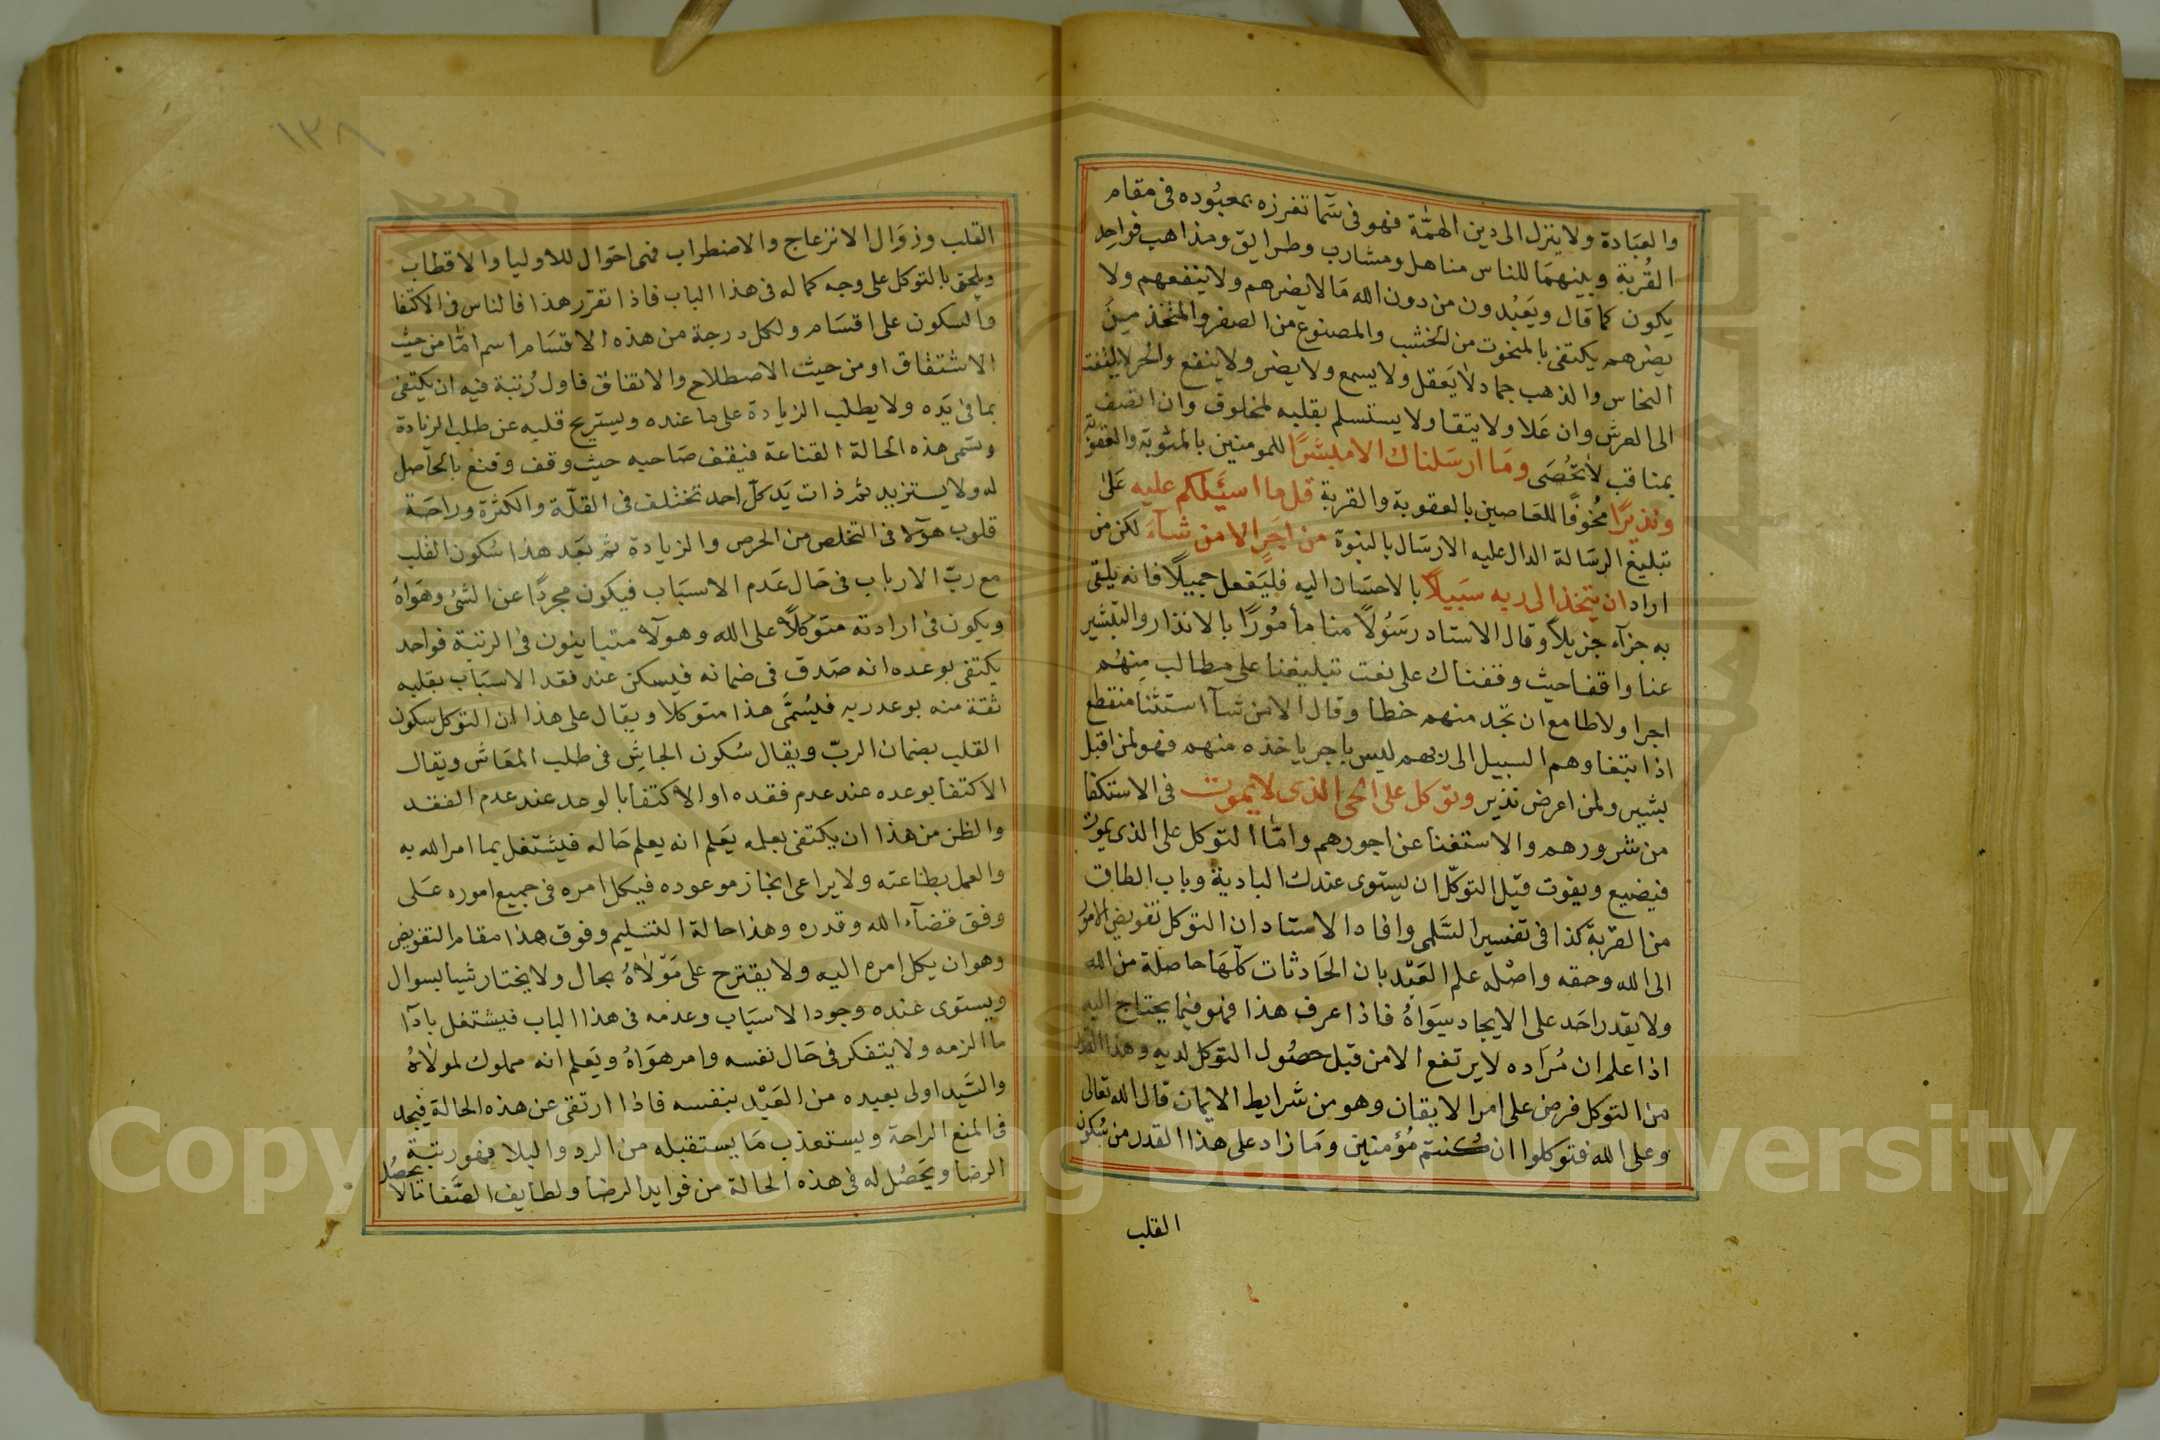 والعبَادة ولا ينزل الى دين الهمّة فهو فى سَما تفرزه بمعبُوده فى مقام
القُربة وبينهمَا للناس مناهل ومشارب وطرايق ومذاهب فواحِد
يكون كما قال ويَعْبُدون من دون الله مَا لا يضرهم ولا ينفعهم ولا
يضرهم يكتفى بالمنحوت من الخشب والمصنوع من الصفر والمتخذ مِنَ
النحاس والذهب جماد لا يَعقل ولا يسمع ولا يضر ولا ينفع والحر لا يلتفت
الى العرش وان عَلا ولا يتقا ولا يستسلم بقلبه لمخلوق وان اتصف
بمناقب لا تحُصَى ومَا ارسَلناك الا مبشرًا للمومنين بالمثوبة والعقوبة
ونذيرًا مخُوفًا للعَاصين بالعقوبة والقربة قل ما اسئلكم عليه عَلىٰ
تبليغ الرسَالة الدال عليه الارسَال بالنبوة من اجَرٍ الا من شآءَ لكن من
اراد ان يتخذ الى ربه سَبيلاً بالاحسَان اليه فليَفعل جميلاً فانه يلقى
به جزآء جزيلاً وقال الاستاد رَسُولاً منا مأمُورًا بالانذار والتبشير
عنا واقفا حيث وقفناك على نعت تبليغنا على مطالب مِنهُم
اجرا ولا طامع ان تجد منهم خطا وقال الا من شآ استثنا منقطع
اذ ابتغاوهم السبيل الى ربهم ليس باجر ياخذه منهم فهو لمن اقبل
بشير ولمن اعرض نذير وتوكل على الحى الذى لا يموت فى الاستكفا
من شرورهم والاستغنا عن اجورهم وامّا التوكل على الذى يموت
فيضيع ويفوت قيل التوكّل ان يستوى عندك البادية وباب الطاق
من القربة كذا فى تفسير السّلمى وافاد الاستاد ان التوكل تفويض الامور
الى الله وحقه واصْله علم العَبْد بان الحَادثات كلّهَا حاصلة من الله
ولا يقدر احَد على الايجاد سِوَاهُ فاذا عرف هذا فهو فيما يحتاج اليه
اذا علم ان مُرَاده لا يرتفع الا من قبل حصُول التوكل لديه وهذا القدر
من التوكل فرض على امر الايقان وهو من شرايط الايمان قال الله تعالى
وعلى الله فتوكلوا ان كُنتم مُؤمنين ومَا زاد على هذا القدر من سُكون
القلب
١٣٨
القلب وزوَال الانزعاج والاضطراب فهى احَوال للاوليا والاقطاب
ويلحق بالتوكل على وجه كماله فى هذا الباب فاذا تقرّر هذا فالناس فى الاكتفا
والسكون على اقسَام ولكل درجة من هذه الاقسَام اسم امّا من حيث
الاشتقاق او من حيث الاصطلاح والاتفاق فاول رُتبة فيه ان يكتفى
بما فى يَده ولا يطلب الزيادة على ما عنده ويستريح قلبه عن طلب الزيادة
وسَمى هذه الحالة القناعة فيقف صَاحبه حيث وقف وقنع بالحاصل
له ولا يستزيد ثم ذات يَد كلّ احد تختلف فى القلّة والكثرة وراحَة
قلوب هولآ فى التخلص من الحرص والزيادة ثم بعَد هذا سُكون القلب
مع ربّ الارباب فى حَال عَدم الاسبَاب فيكون مجردًا عن الشئ وهَواهُ
ويكون فى ارادته متوكلاً على الله وهولآ متباينون فى الرتبة فواحد
يكتفى بوعده انه صَدق فى ضمانه فيسكن عند فقد الاسبَاب بقلبه
ثقة منه بوعد ربه فيسُمّى هذا متوكلا ويقال على هذا ان التوكل سكون
القلب بضمان الربّ ويقال سُكون الجاش فى طلب المعَاش ويقال
الاكتفا بوعده عند عدم فقده او الاكتفا بالوعد عند عدم الفقد
والظن من هذا ان يكتفى بعلمه يَعَلم انه يعلم حَاله فيشتغل بما امر الله به
والعمل بطاعته ولا يراعى انجاز موعوده فيكل امره فى جميع اموره عَلى
وفق قضآء الله وقدره وهذا حالة التسليم وفوق هذا مقام التفويض
وهو ان يكل امره اليه ولا يقترح على مَوْلاهُ بحال ولا يختار شيا بسوال
ويستوى عنده وجود الاسبَاب وعدمه فى هذا الباب فيشتغل بادآ
ما الزمه ولا يتفكر فى حَال نفسه وامر هوَاهُ ويَعَلم انه مملوك لمولاهُ
والسَّيد اولى بعبده من العَبْد بنفسه فاذا ارتقى عن هذه الحالة فيجد
فى المنع الراحة ويستعذب مَا يستقبله من الرد والبلا فهو رتبة
الرضا ويَحصُل له فى هذه الحالة من فوايد الرضا ولطايف الصّفا مالا يحصُل
Copyright © King Saud University